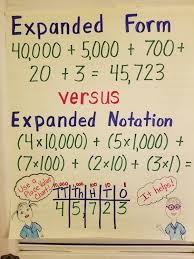 Expanded Form
40,000 + 5,000 + 700 +
20 + 3 = 45,723
versus
Expanded Notation
(4 x 10,000) + (5 x 1,000) +
(7 x 100) + (2 x 10) + (3 x 1) =
Use a Place Value Chart!
10,000 1,000 100 10 1
TTh Th H T O
4 5 7 2 3
It helps!